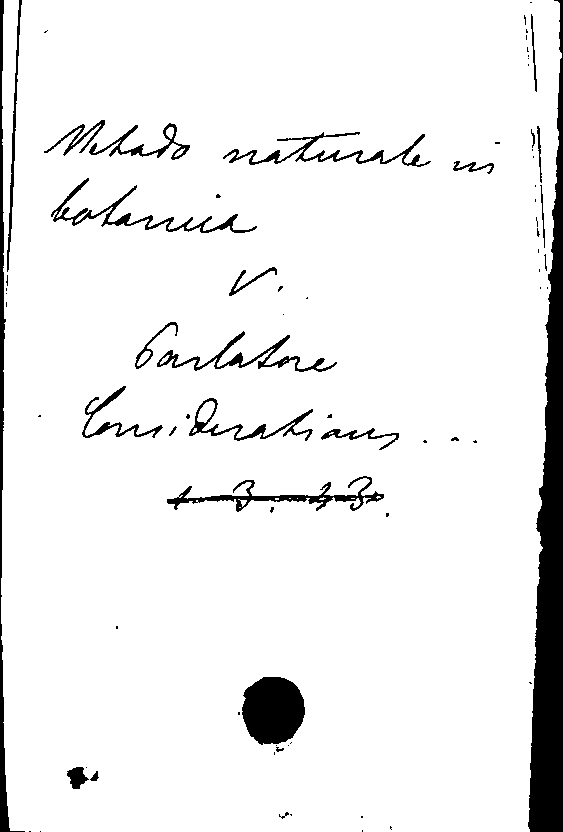 Metodo naturale in
botanica
V.
Parlatore
Considerations...
1 3. 23.